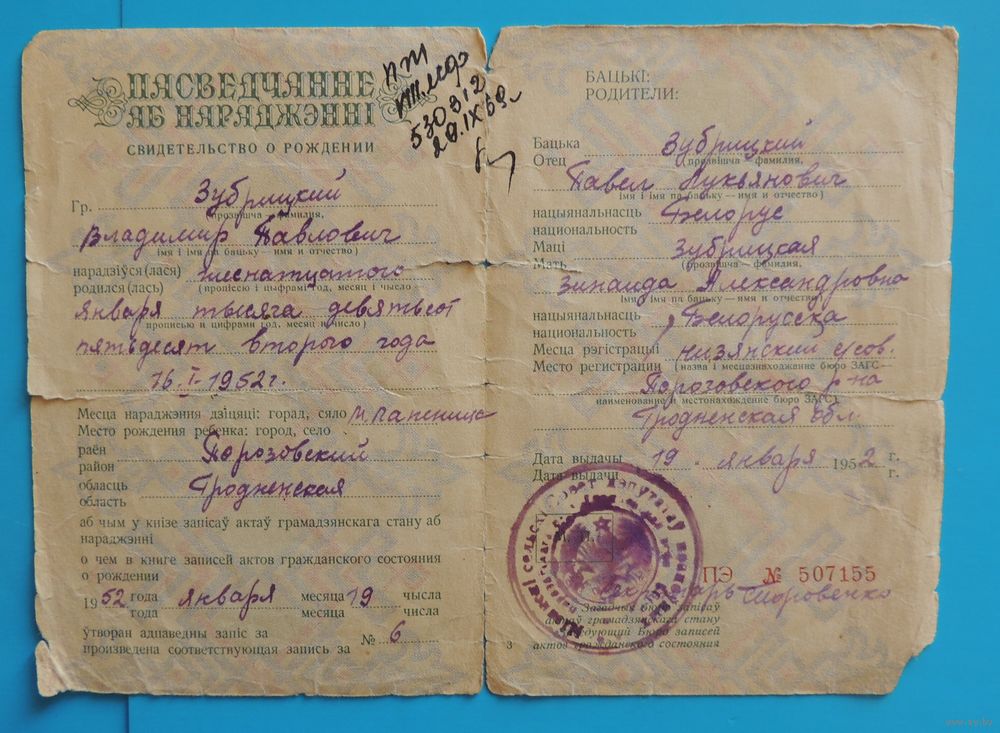 ПАСВЕДЧАННЕ
АБ НАРАДЖЭННІ
СВИДЕТЕЛЬСТВО О РОЖДЕНИИ
530912
20.IX 68.
Гр. Зубрицкий
(прозвішча — фамилия,
Владимир Павлович
імя і імя па бацьку — имя и отчество)
нарадзіўся(лася) шеснатцатого
родился(лась) (прописью і цыфрамі год, месяц і чысло
января тысяча девятьсот
прописью и цифрами год, месяц и число)
пятьдесят второго года
16.I-1952 г.
Месца нараджэння дзіцяці: горад, сяло
Место рождения ребенка: город, село
раён Порозовский
район
обласць Гродненская
область
аб чым у кнізе запісаў актаў грамадзянскага стану аб
нараджэнні
о чем в книге записей актов гражданского состояния
о рождении
1952 года января месяца 19 чысла
года месяца числа
утворан адпаведны запіс за № 6
произведена соответствующая запись за
БАЦЬКІ:
РОДИТЕЛИ:
Бацька Зубрицкий
Отец (прозвішча — фамилия,
Павел Лукьянович
імя і імя па бацьку — имя и отчество)
нацыянальнасць Белорус
национальность
Маці Зубрицкая
Мать (прозвішча — фамилия,
Зинаида Александровна
імя і імя па бацьку — имя и отчество)
нацыянальнасць Белорусска
национальность
Месца рэгістрацыі низянский с/сов.
Место регистрации (назва і месцазнаходжанне бюро ЗАГС—
Порозовского р-на
наименование и местонахождение бюро ЗАГС)
Гродненская обл.
Дата выдачы 19 января 1952 г.
Дата выдачи г.
ПЭ № 507155
Секретарь
Загадчык бюро запісаў
актаў грамадзянскага стану
Заведующий Бюро записей
актов гражданского состояния
3